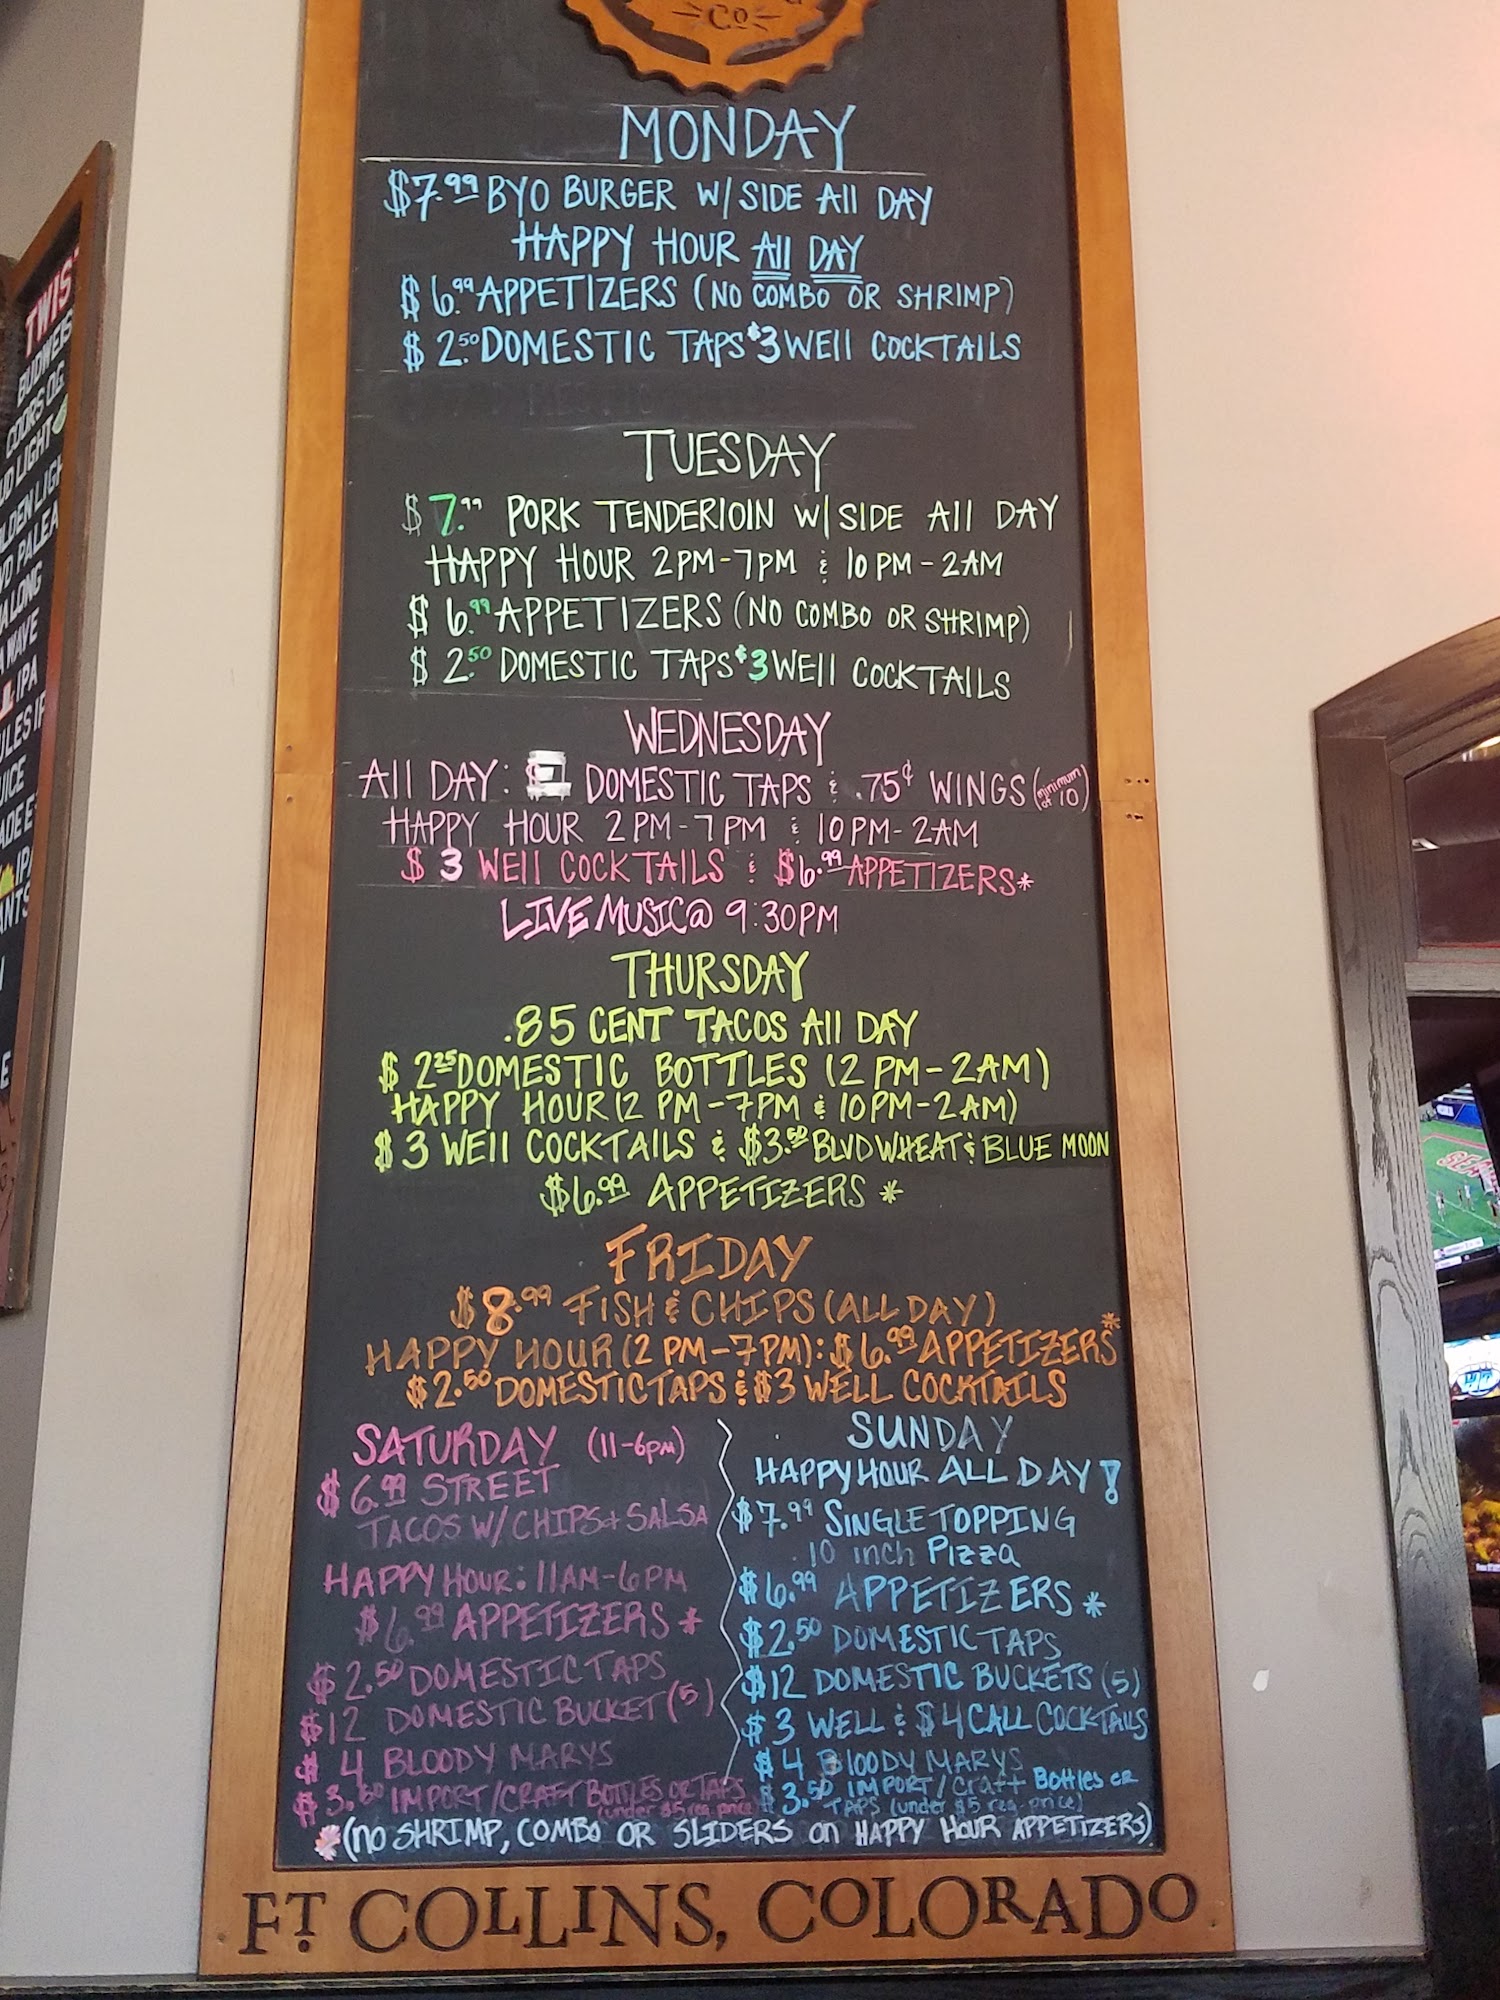 Co
MONDAY
$7.99 BYO BURGER W/ SIDE All DAY
HAPPY HOUR All DAY
$6.99 APPETIZERS (NO COMBO OR SHRIMP)
$2.50 DOMESTIC TAPS $3 WEll COCKTAILS
TUESDAY
$7.99 PORK TENDERlOIN W/ SIDE All DAY
HAPPY HOUR 2PM-7PM & 10PM-2AM
$6.99 APPETIZERS (NO COMBO OR SHRIMP)
$2.50 DOMESTIC TAPS $3 WEll COCKTAILS
WEDNESDAY
All DAY: DOMESTIC TAPS & .75¢ WINGS (minimum of 10)
HAPPY HOUR 2PM-7PM & 10PM-2AM
$3 WEll COCKTAILS & $6.99 APPETIZERS*
LIVE MUSIC @ 9:30PM
THURSDAY
.85 CENT TACOS All DAY
$2.25 DOMESTIC BOTTLES (2PM-2AM)
HAPPY HOUR (2PM-7PM & 10PM-2AM)
$3 WEll COCKTAILS & $3.50 BLVD WHEAT & BLUE MOON
$6.99 APPETIZERS *
FRIDAY
$8.99 FISH & CHIPS (ALL DAY)
HAPPY HOUR (2PM-7PM): $6.99 APPETIZERS*
$2.50 DOMESTIC TAPS & $3 WELL COCKTAILS
SATURDAY (11-6pm)
$6.99 STREET
TACOS W/ CHIPS + SALSA
HAPPY HOUR: 11AM-6PM
$6.99 APPETIZERS *
$2.50 DOMESTIC TAPS
$12 DOMESTIC BUCKET (5)
$4 BLOODY MARYS
$3.50 IMPORT/CRAFT BOTTLES OR TAPS
(under $5 reg. price)
SUNDAY
HAPPY HOUR ALL DAY!
$7.99 SINGLE TOPPING
10 inch Pizza
$6.99 APPETIZERS *
$2.50 DOMESTIC TAPS
$12 DOMESTIC BUCKETS (5)
$3 WELL & $4 CALL COCKTAILS
$4 BlOODY MARYS
$3.50 IMPORT/Craft Bottles or
TAPS (under $5 reg. price)
*(no SHRIMP, COMBO OR SLIDERS on HAPPY HOUR APPETIZERS)
FT. COLLINS, COLORADO
TWIS
BUDWEIS
COORS OG
LIGHT
PALE
LONG
WAVE
IPA